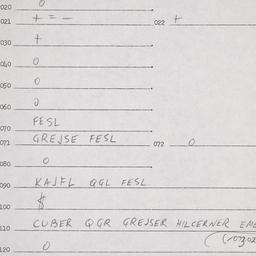 020 0
021 + = - 022 +
030 +
040 0
050 0
060 0
070 FESL
071 GREJSE FESL 072 0
080 0
090 KAJFL QGL FESL
100 $
110 CUBER QGR GREJSER HILCERNER EME
120 0